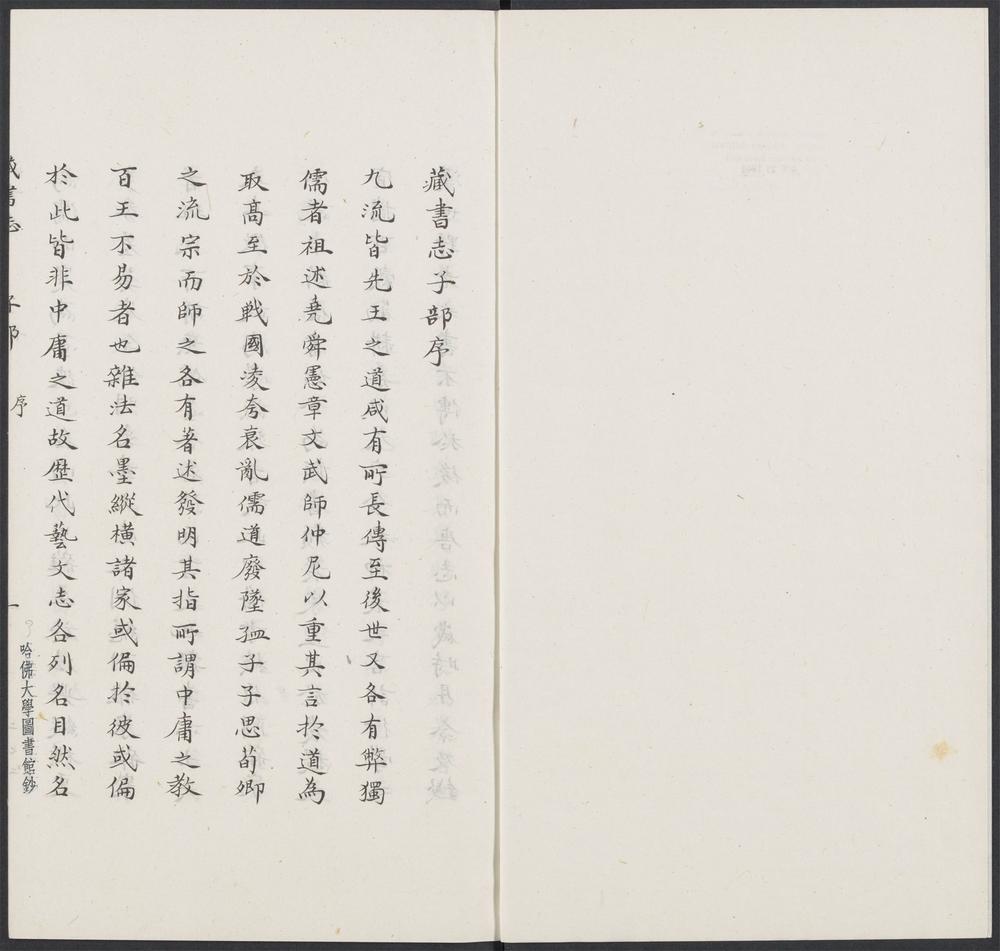 藏書志子部序
九流皆先王之道咸有所長傳至後世又各有弊獨
儒者祖述堯舜憲章文武師仲尼以重其言於道為
取高至於戰國凌夸衰亂儒道廢墜孟子子思荀卿
之流宗而師之各有著述發明其指所謂中庸之教
百王不易者也雜法名墨縱橫諸家或偏於彼或偏
於此皆非中庸之道故歷代藝文志各列名目然名
藏書志 子部 序 一 哈佛大學圖書館鈔